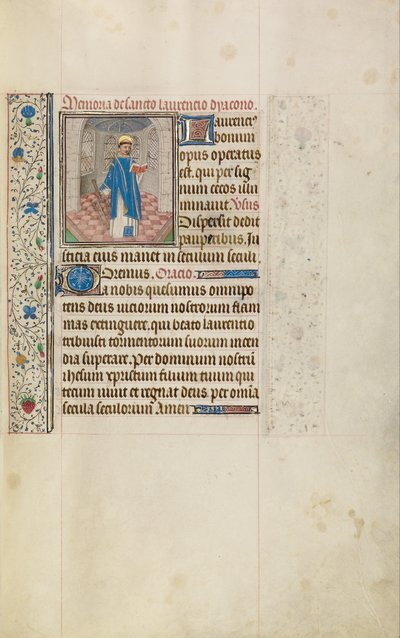 Memoria de sancto laurencio dyacono.
Laurenciꝰ
bonum
opus operatus
est. qui per sig
num cecos illu
minauit. Vsus
Dispersit dedit
pauperibus. Ju
sticia eius manet in seculum seculi.
Oremus. Oracio.
Da nobis quesumus omnipo
tens deus viciorum nostrorum flam
mas extinguere, qui beato laurencio
tribuisti tormentorum suorum incen
dia superare. Per dominum nostrū
ihesum xpristum filium tuum qui
tecum viuit et regnat deus per omia
secula seculorum Amen